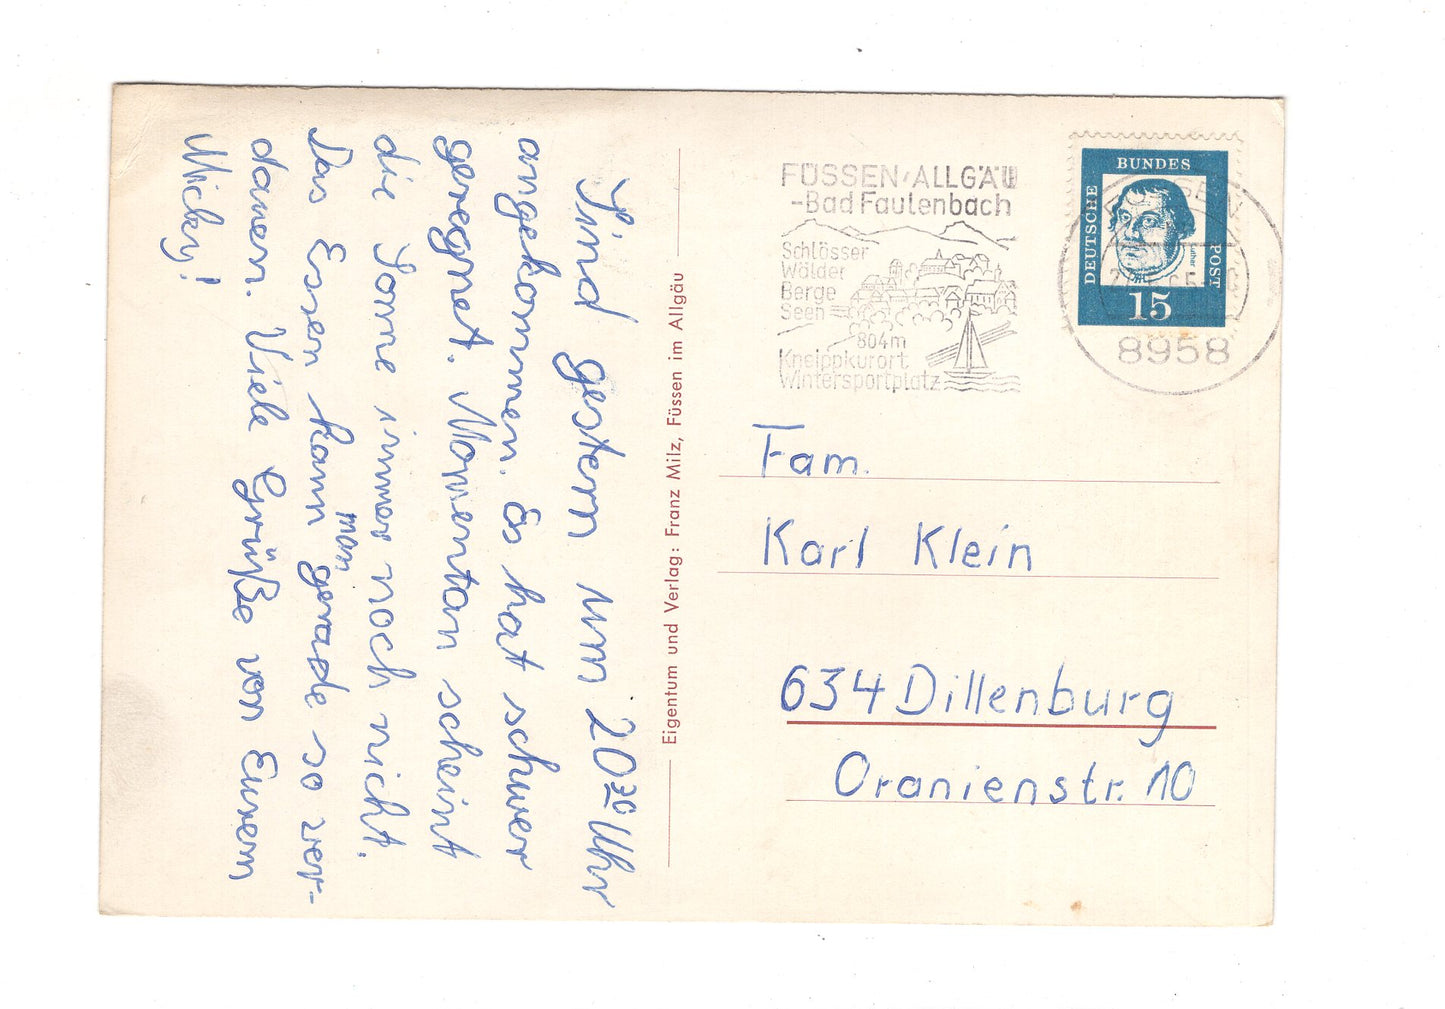 Sind gestern um 20³⁰ Uhr
angekommen. Es hat schwer
geregnet. Momentan scheint
die Sonne immer noch nicht.
Das Essen kann man gerade so ver-
dauen. Viele Grüße von Eurem
Micky!
Eigentum und Verlag: Franz Milz, Füssen im Allgäu
FÜSSEN/ALLGÄU
-Bad Faulenbach
Schlösser
Wälder
Berge
Seen
804m
Kneippkurort
Wintersportplatz
DEUTSCHE
BUNDES
POST
Luther
15
8958
Fam.
Karl Klein
634 Dillenburg
Oranienstr. 10